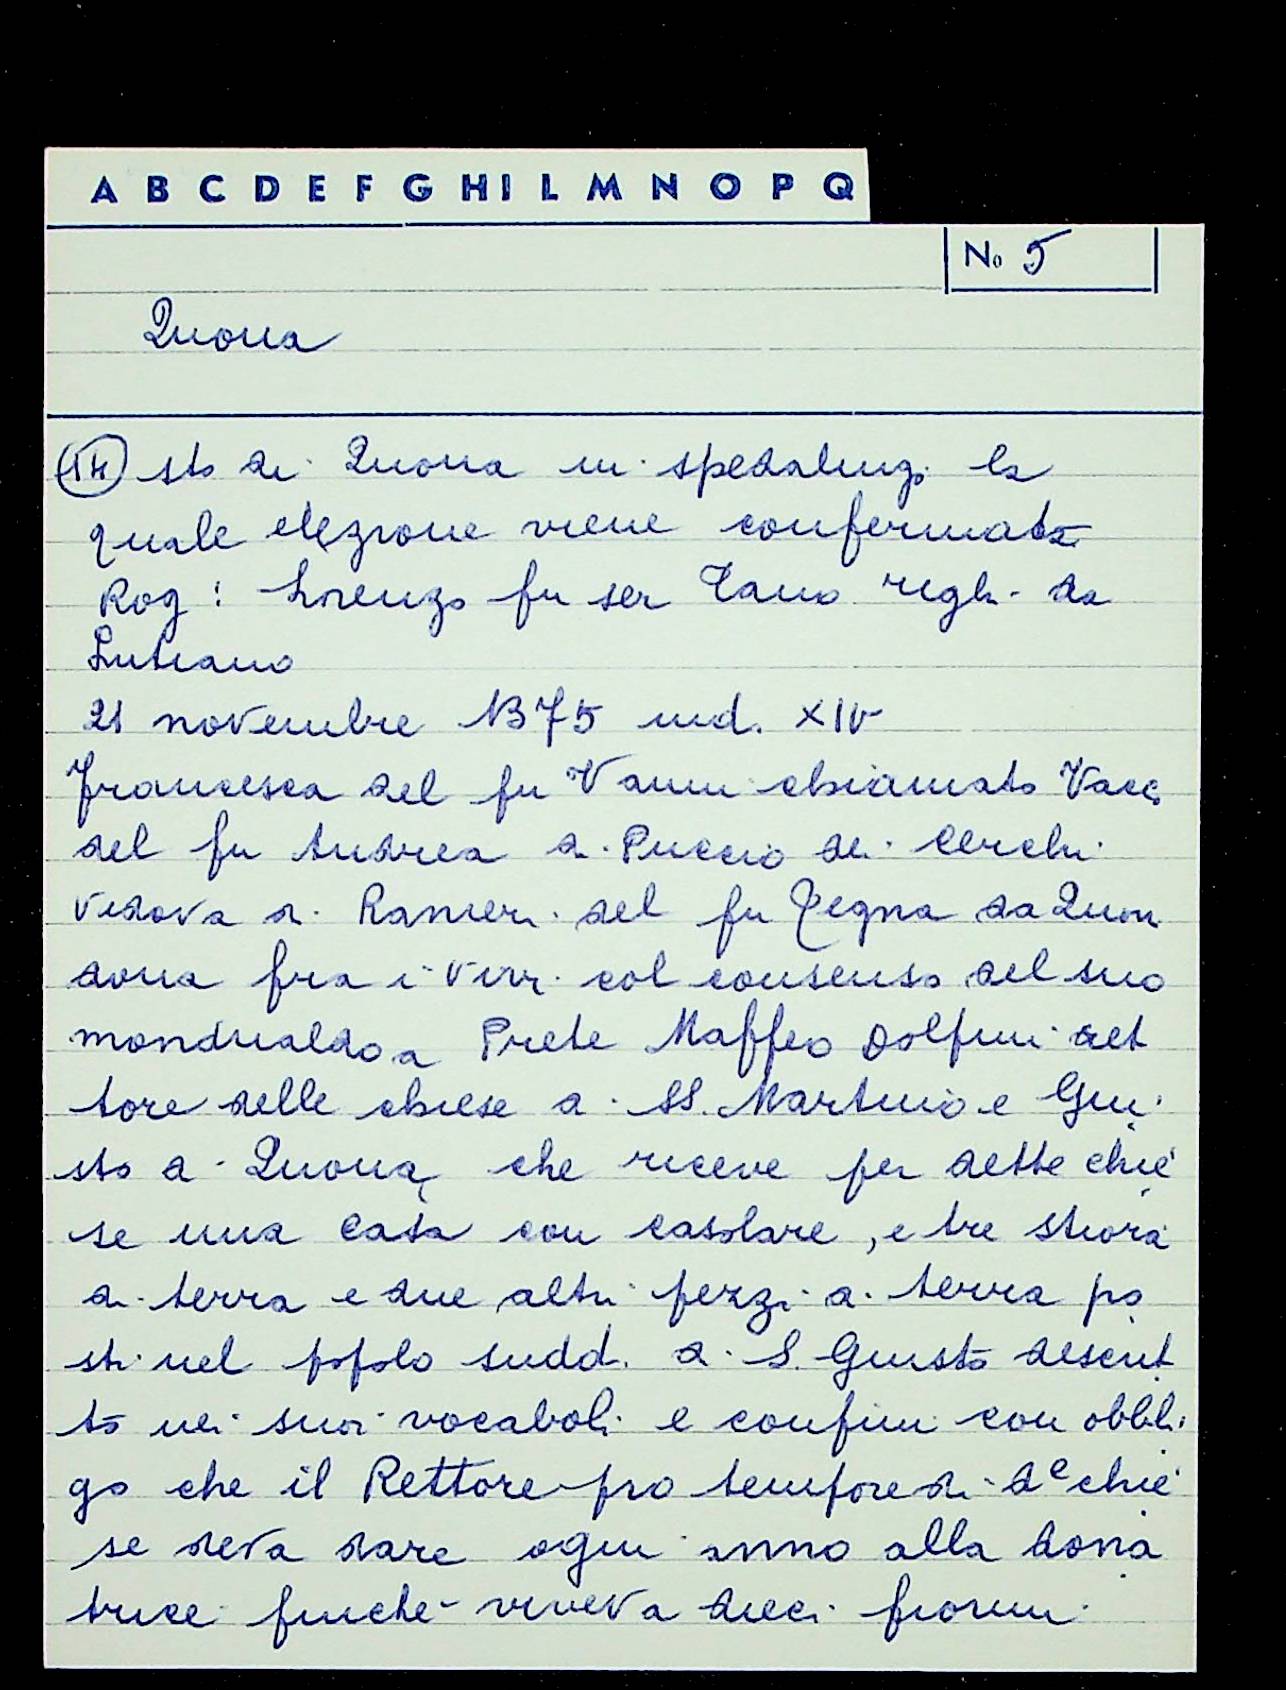 A B C D E F G H I L M N O P Q
No 5
Quona
(14) sto di Quona in spedalingo la
quale elezione viene confermata
Rog: Lorenzo fu ser Tano righi da
Lutiano
21 novembre 1375 ind. XIV
Francesca del fu Vanni chiamato Vacc
del fu Andrea di Puccio dei Cerchi
vedova di Ranieri del fu Tegna da Quon
dona fra i vivi col consenso del suo
mondualdo a Prete Maffeo Dolfini ret
tore delle chiese di SS. Martino e Giu
sto a Quona, che riceve per dette chie
se una casa con casolare, e tre stiora
di terra e due altri pezzi di terra po
sti nel popolo sudd. di S. Giusto descrit
to nei suoi vocaboli e confini con obbli
go che il Rettore pro tempore di de chie
se deva dare ogni anno alla dona
trice finche viveva dieci fiorini